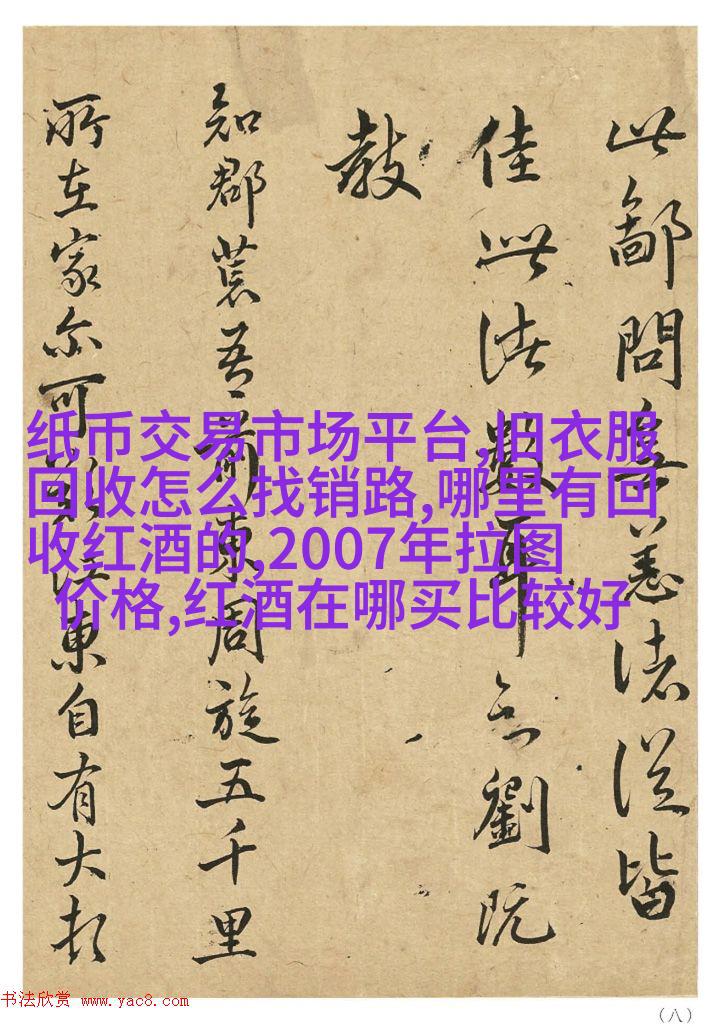 此鄙問
佳此法數耳
劉既
教
知郡荒吾前東周旋五千里
所在家亦可
東自有大
纸币交易市场平台,旧衣服
回收怎么找销路,哪里有回
收红酒的,2007年拉图
价格,红酒在哪买比较好
书法欣赏 www.yac8.com
（八）